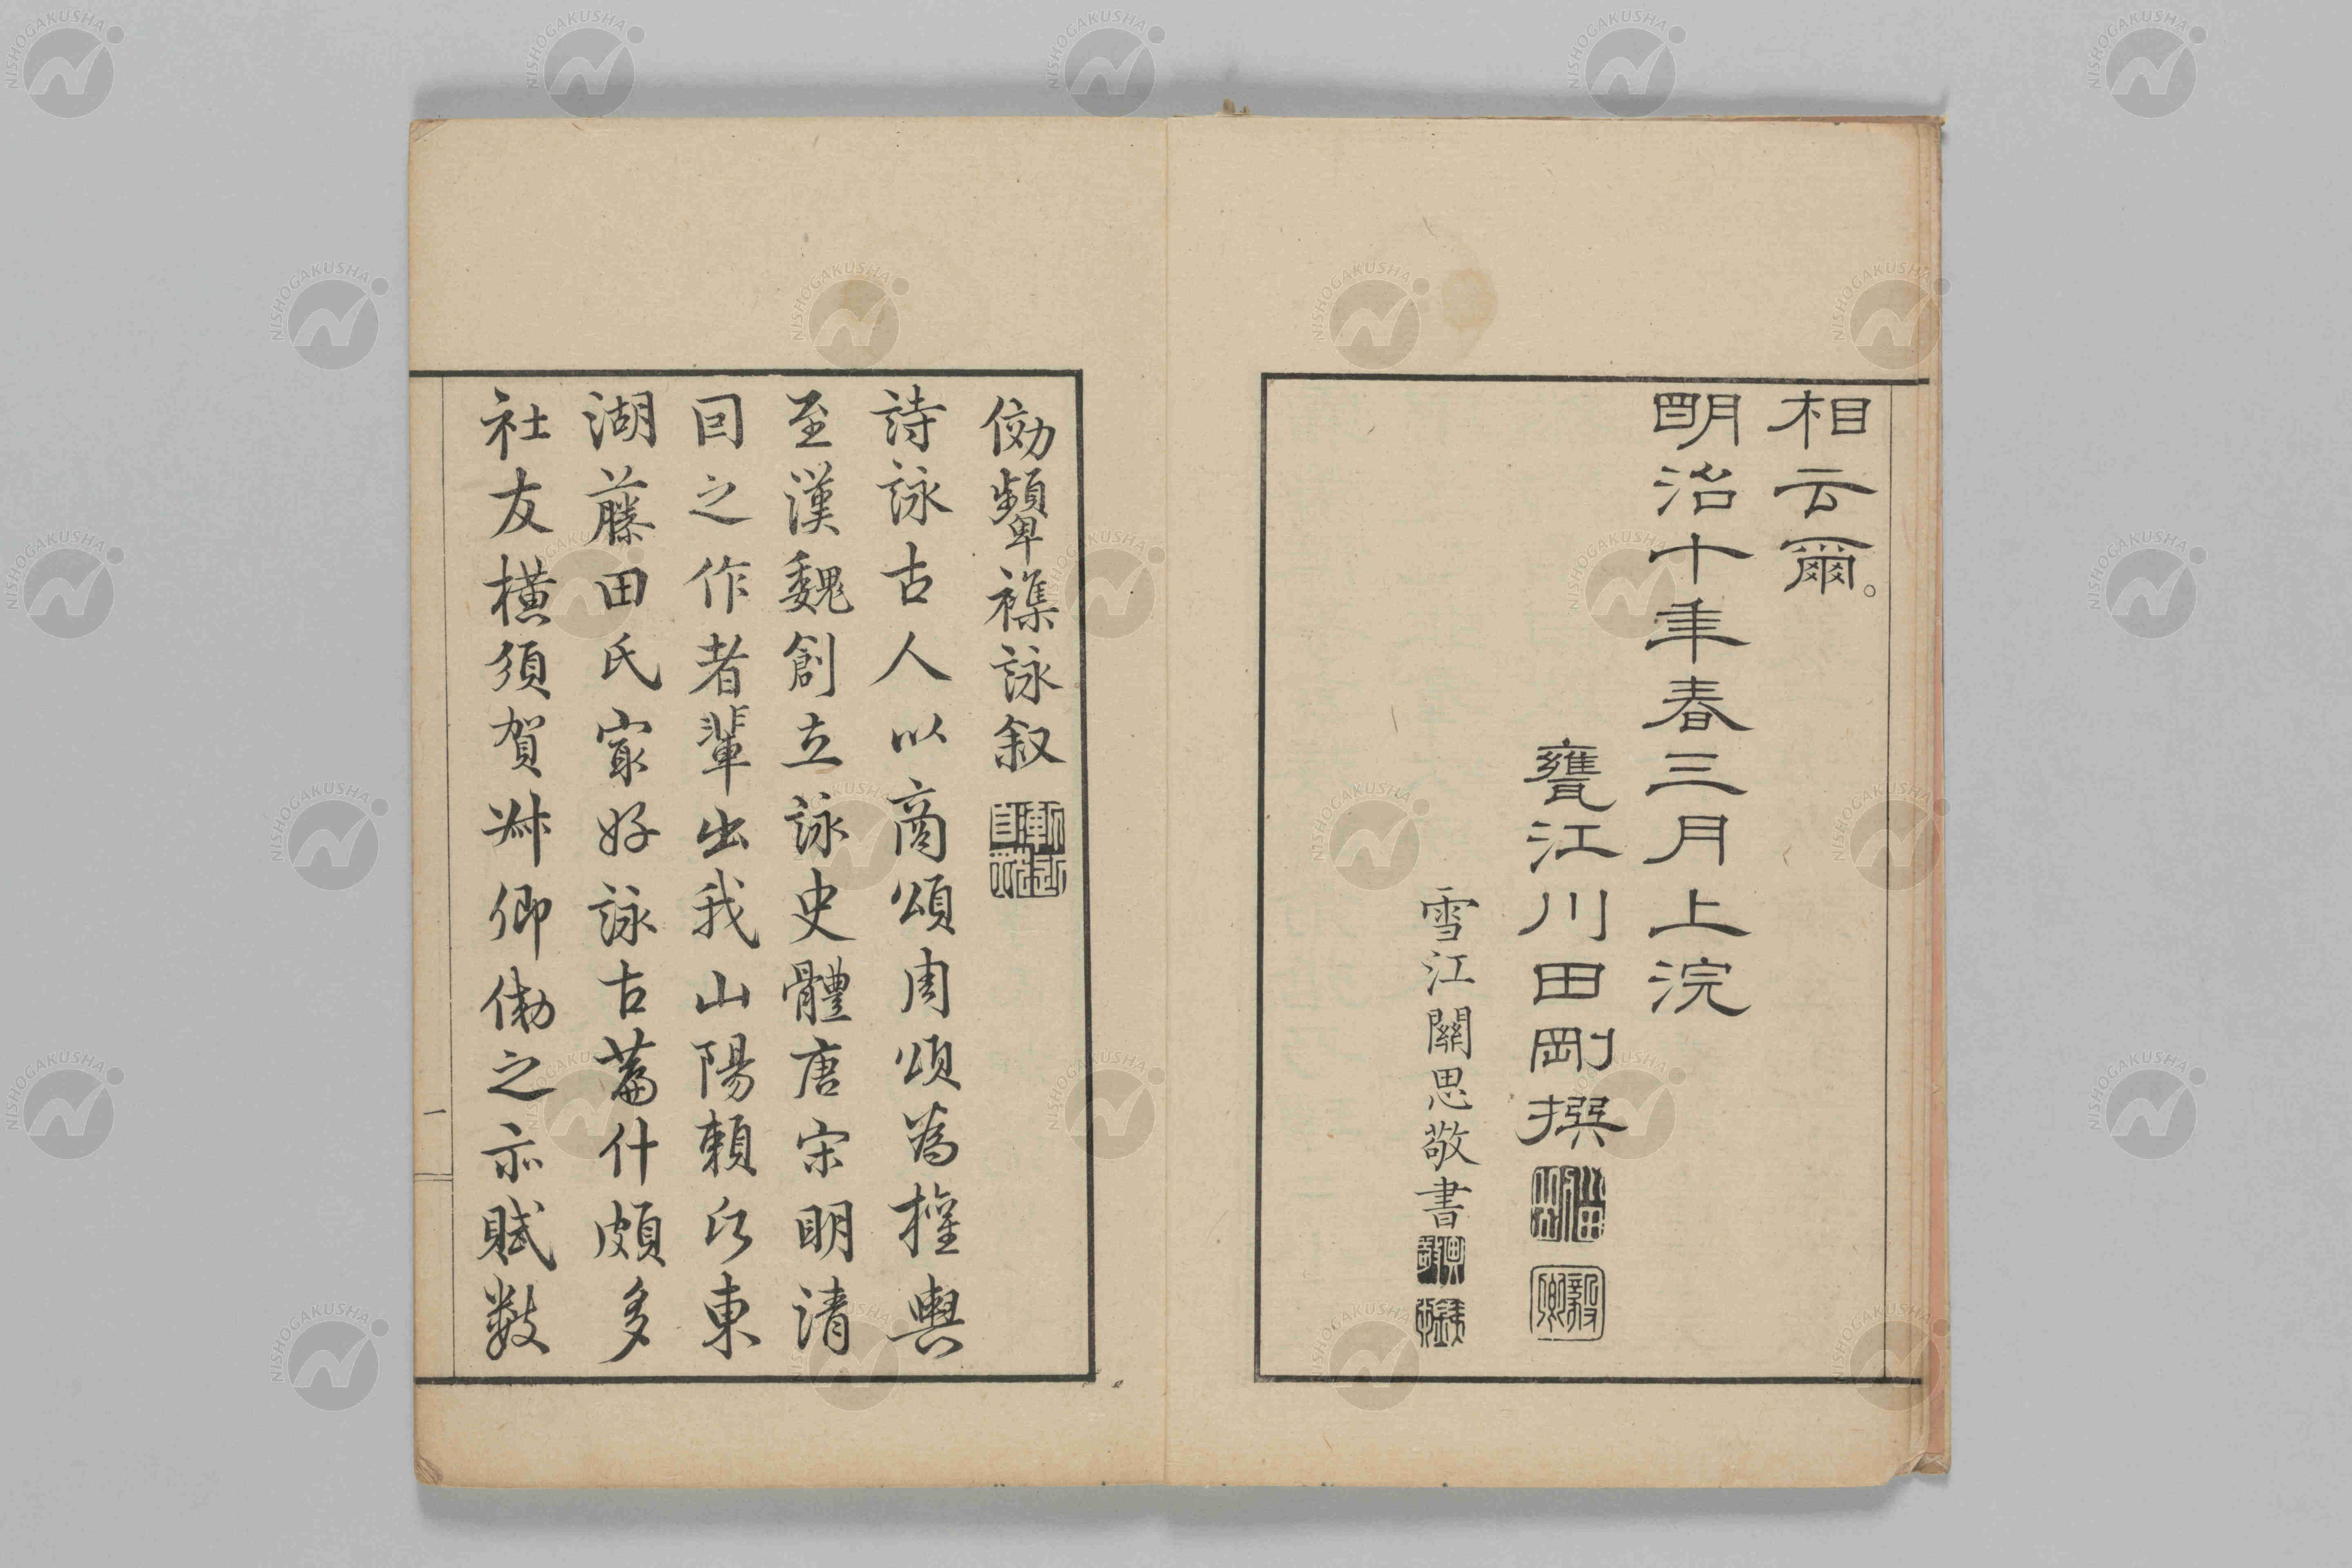 相云爾。
明治十年春三月上浣
甕江川田剛撰
雪江關思敬書
毅卿
倣顰襍詠叙
詩詠古人以商頌周頌為權輿
至漢魏創立詠史體唐宋明清
囙之作者輩出我山陽賴氏東
湖藤田氏最好詠古萹什頗多
社友橫須賀舛卿倣之亦賦数
一
NISHOGAKUSHA